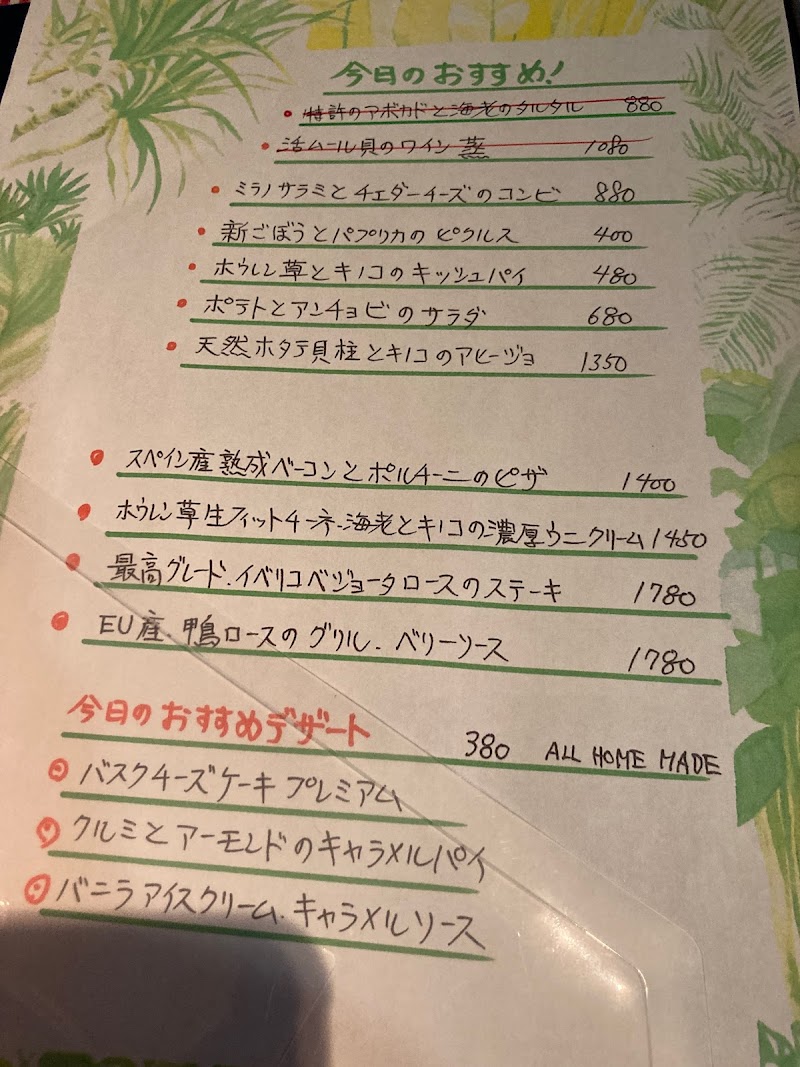 今日のおすすめ!
特許のアボカドと海老のタルタル 880
活ムール貝のワイン蒸 1080
ミラノサラミとチェダーチーズのコンビ 880
新ごぼうとパプリカのピクルス 400
ホウレン草とキノコのキッシュパイ 480
ポテトとアンチョビのサラダ 680
天然ホタテ貝柱とキノコのアヒージョ 1350
スペイン産熟成ベーコンとポルチーニのピザ 1400
ホウレン草生フィットチーネ.海老とキノコの濃厚ウニクリーム 1450
最高グレード.イベリコベジョータロースのステーキ 1780
EU産.鴨ロースのグリル.ベリーソース 1780
今日のおすすめデザート 380 ALL HOME MADE
バスクチーズケーキプレミアム
クルミとアーモンドのキャラメルパイ
バニラアイスクリーム.キャラメルソース